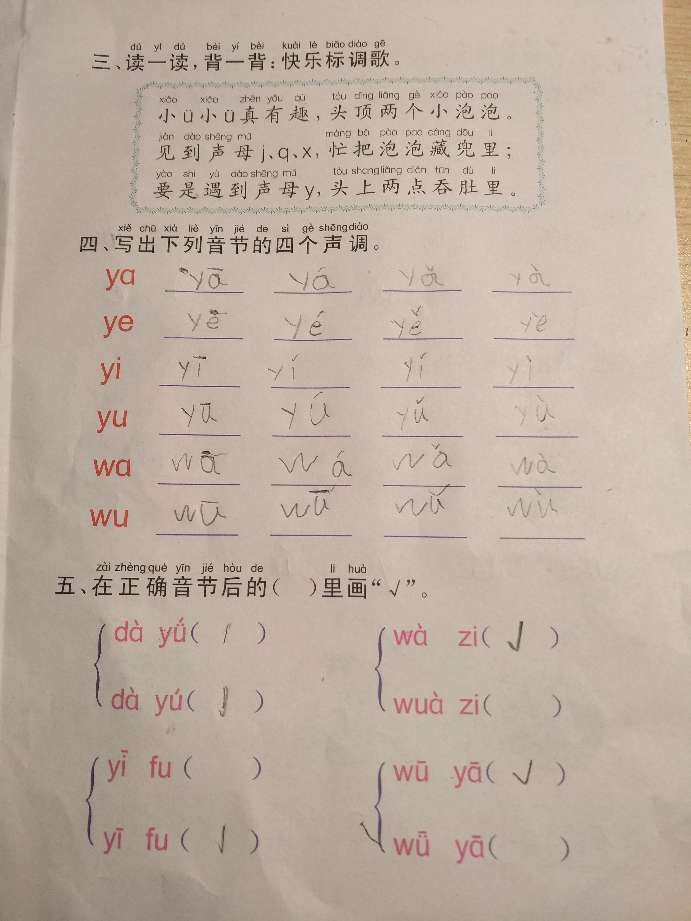 dú yì dú bèi yí bèi kuài lè biāo diào gē
三、读一读，背一背：快乐标调歌。
xiǎo xiǎo zhēn yǒu qù tóu dǐng liǎng gè xiǎo pào pao
小ü小ü真有趣，头顶两个小泡泡。
jiàn dào shēng mǔ máng bǎ pào pao cáng dōu li
见到声母j、q、x，忙把泡泡藏兜里；
yào shi yù dào shēng mǔ tóu shang liǎng diǎn tūn dù li
要是遇到声母y，头上两点吞肚里。
xiě chū xià liè yīn jié de sì gè shēng diào
四、写出下列音节的四个声调。
ya yā yá yǎ yà
ye yē yé yě yè
yi yī yí yí yì
yu yū yú yǔ yù
wa wā wá wǎ wà
wu wū wǔ wù
zài zhèng què yīn jié hòu de li huà
五、在正确音节后的（ ）里画“√”。
dà yǘ（ ） wà zi（√）
dà yú（√） wuà zi（ ）
yī fu（ ） wū yā（√）
yī fu（√） wǖ yā（ ）